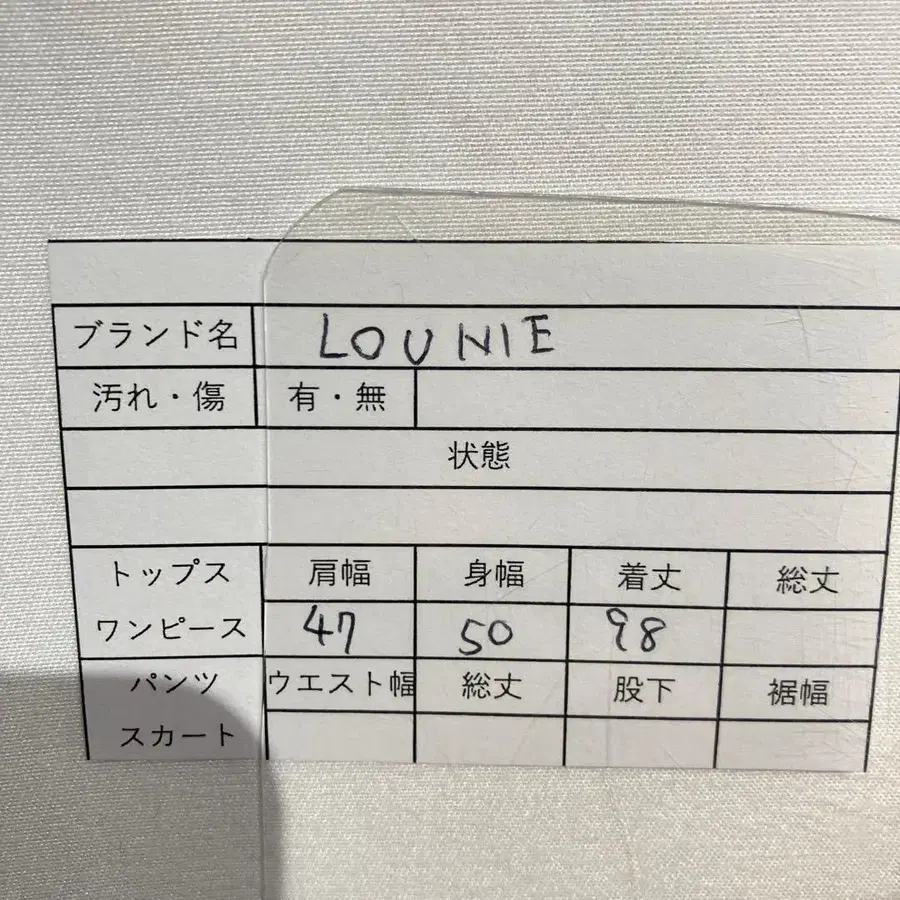 ブランド名 LOUNIE
汚れ・傷 有・無
状態
トップス 肩幅 身幅 着丈 総丈
ワンピース 47 50 98
パンツ ウエスト幅 総丈 股下 裾幅
スカート